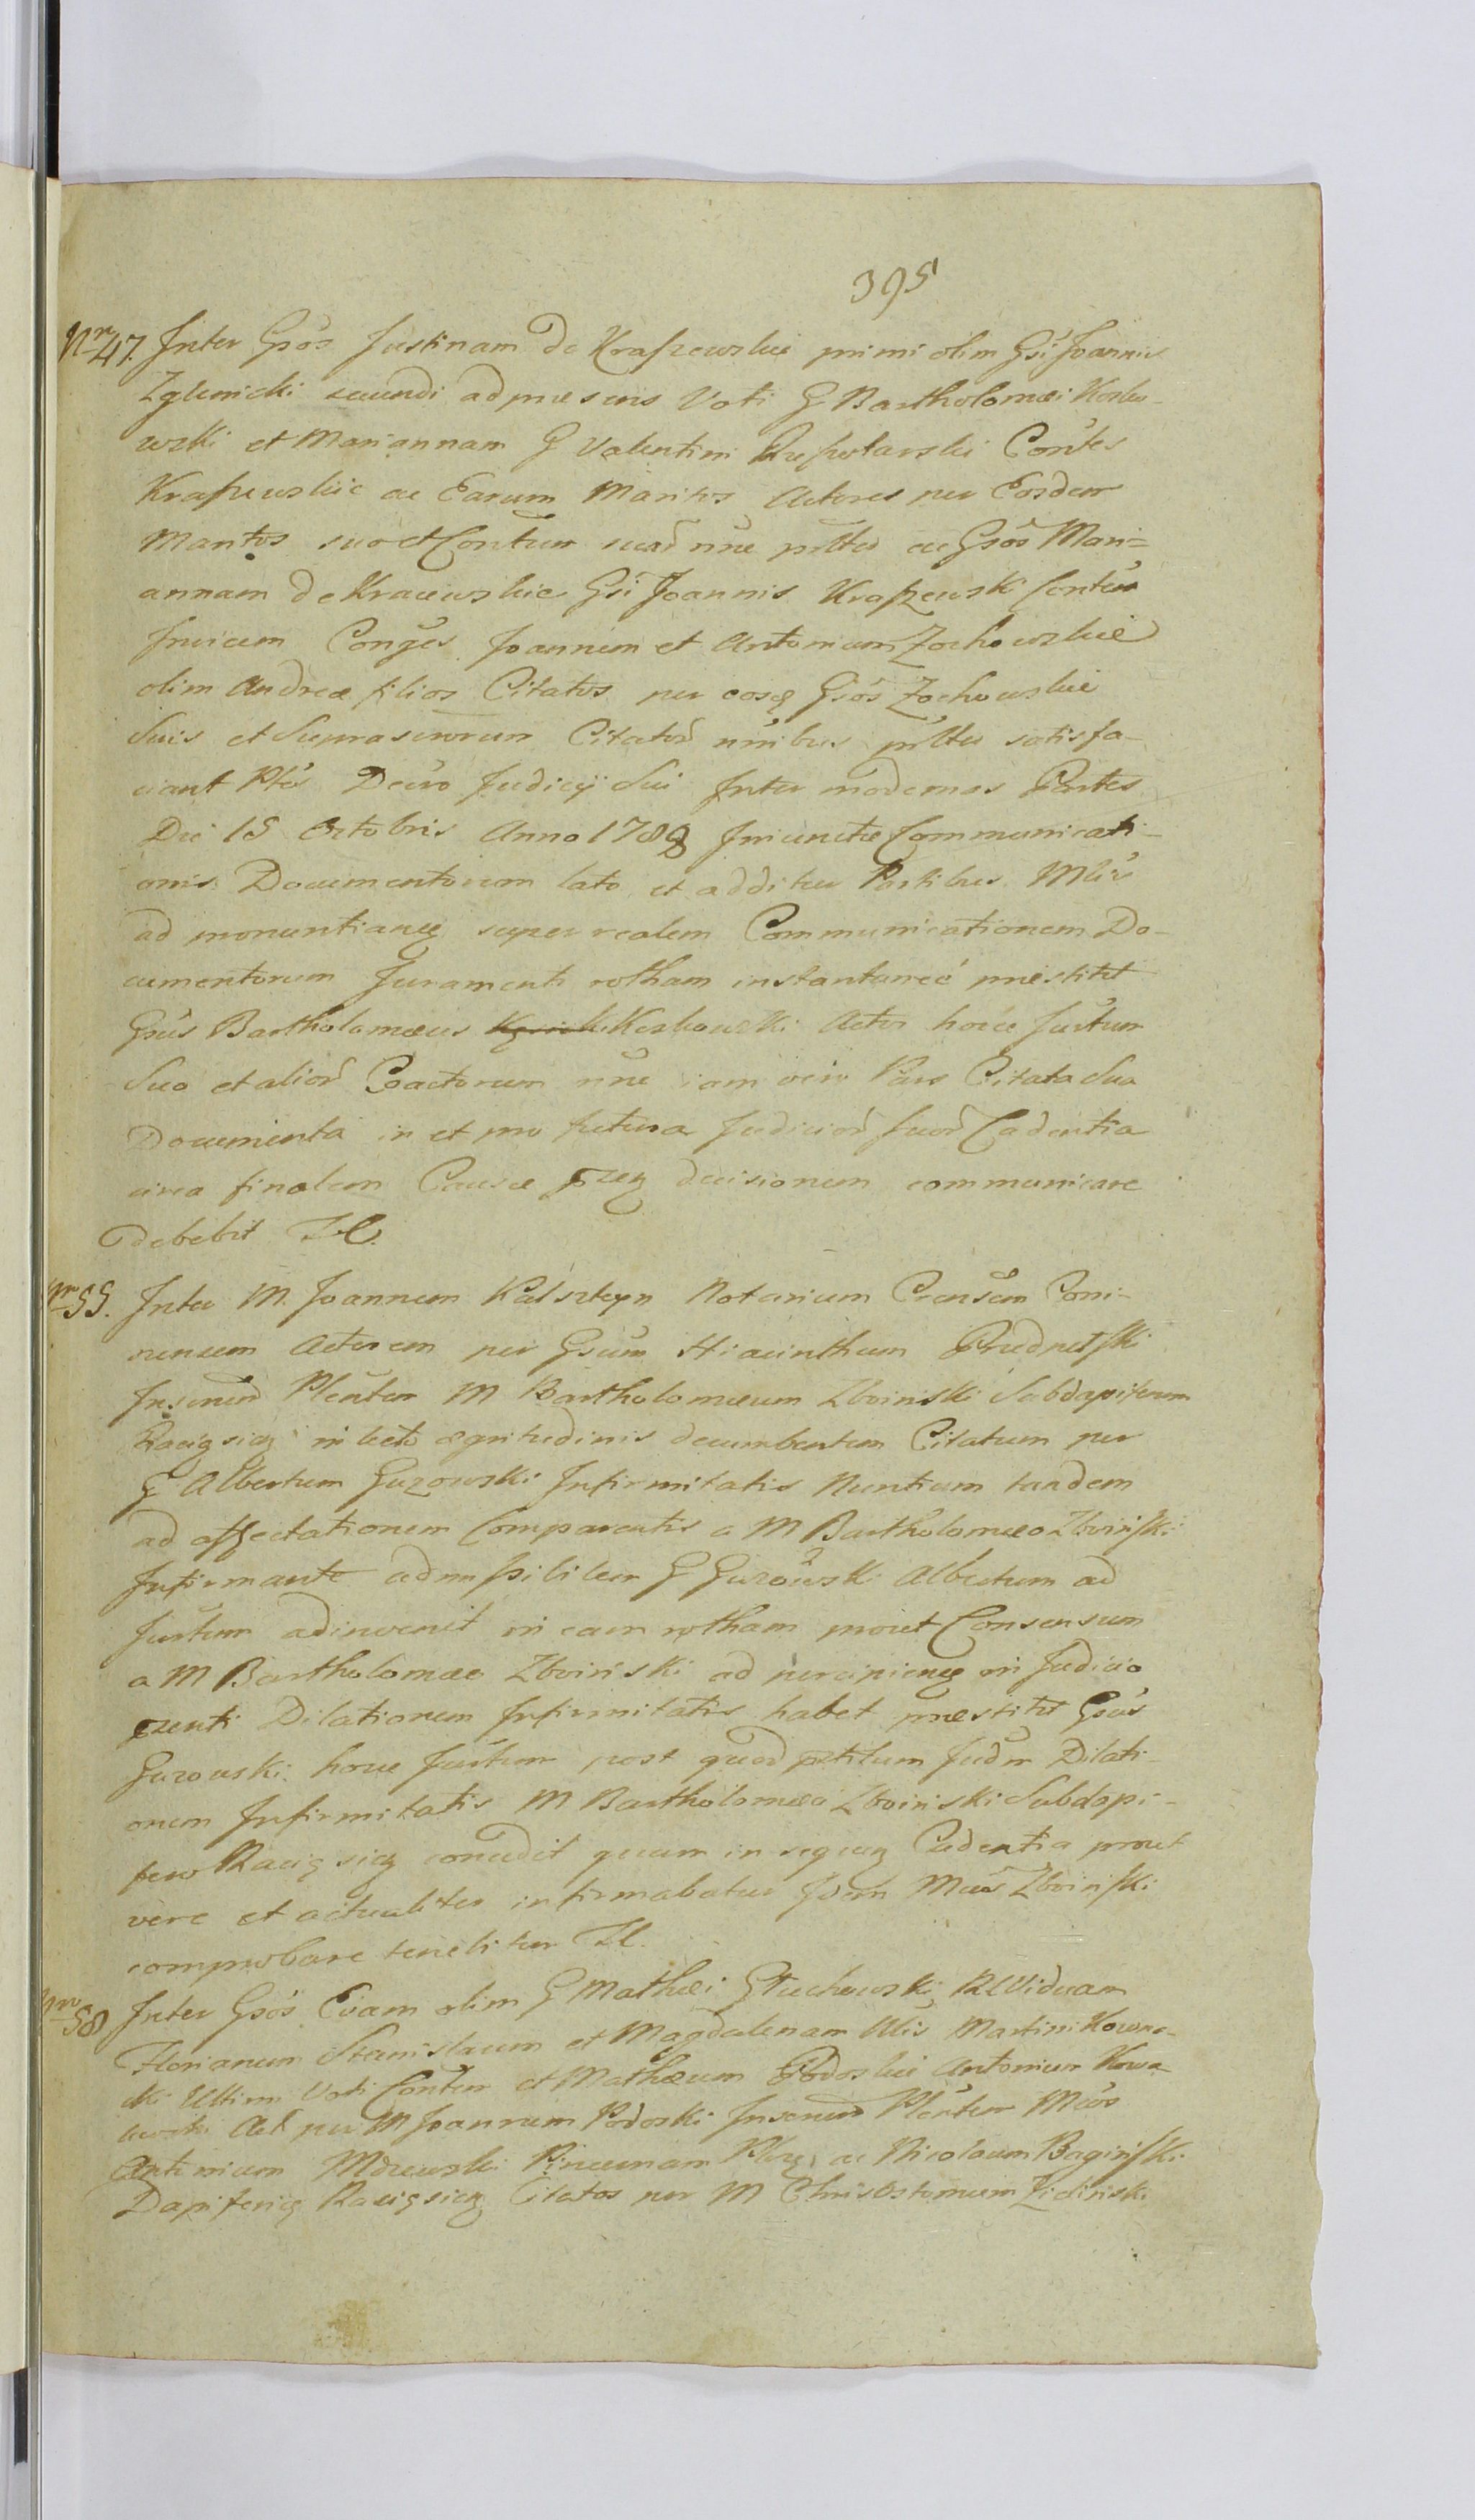 395
Nr 47. Inter Gsos Justinam de Kraszewskie primi olim Gsi Joannis
Zglenicki secundi ad præsens Voti G Bartholomæi Kosko-
wski et Mariannam G Valentini Contes
Kraszewskie ac Earum Maritos Actores per Eosdem
Maritos suo et Contum suar nne pltes ac Gsos Mari=
annam de Kraiewskie Gsi Joannis Kraszewski Contem
Invicem Conges Joannem et Antonium Zochowskie
olim Andreæ filios Citatos per eosq Gsos Zochowskie
Suis et Suprascriorum Citator nnibus pltes satisfa-
ciant Ptes Decro Judicij Sui Inter modernas Partes
Die 15 Octobris Anno 1788 Iniunctæ Communicati-
onis Documentorum lato et additur Partibus Mltis
ad pronuntianq super realem Communicationem Do-
cumentorum Juramenti rotham instantanee præstitit
Gsus Bartholomæus Koskowski Actor hocce Juttum
Suo et alior Coactorum nne iam vero Pars Citata Sua
Documenta in et pro futura Judicior suor Cadentia
circa finalem Causæ pzen decisionem communicare
debebit Il.
Nr 55. Inter M. Joannem Kalszteyn Notarium Crensem Conn-
nensem Actorem per Gsum Hiacinthum Prudnetski
Inserend Plentem M Bartholomæum Zboinski Subdapiferum
Raciązien in lecto ægritudinis decumbentem Citatum per
G Albertum Guzowski Infirmitatis Nuntium tandem
ad affectationem Comparentis a M Bartholomæo Zboinski
Infirmante admissibilem G Guzowski Albertum ad
Juttum adinvenit in eam rotham prout Consensum
a M Bartholomæo Zboinski ad percipienq in Judicio
pzenti Dilationem Infirmitatis habet præstitit Gsus
Guzowski hocce Juttum post quod ptitum Judm Dilati-
onem Infirmitatis M Bartholomæo Zboinski Subdapi-
fero Raciązien concedit quam in seqen Cadentia prout
vere et actualiter infirmabatur Idem Mcus Zboinski
comprobare tenebitur Il.
Nr 58 Inter Gsos Evam olim G Mathæi Głuchowski R Viduam
Florianum Stanislaum et Magdalenam Ultis Martini Kowna-
cki Ultimi Voti Contem et Mathæum Podoskie Antonium Kowa-
lewski Act per M Joannem Podoski Inserend Plentem Mcos
Antonium Mdzewski Pincernam ac Nicolaum Baginski
Dapiferiq Raciązien Citatos per M Chrisostomum Zielinski